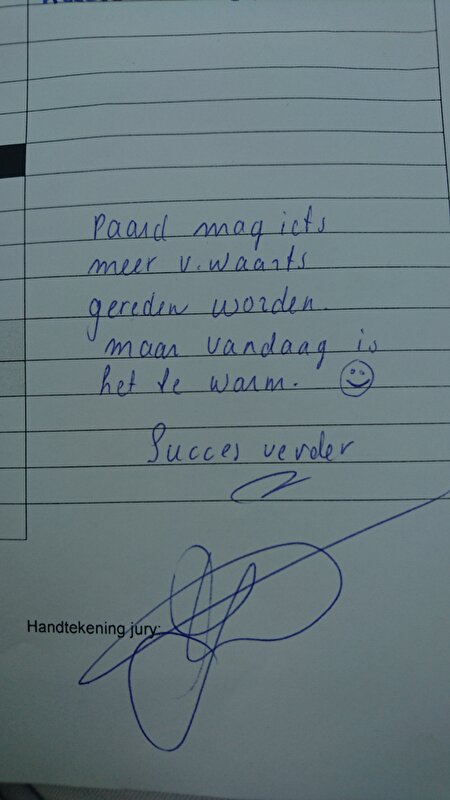 Paard mag iets
meer v.waarts
gereden worden.
maar vandaag is
het te warm.
Succes verder
Handtekening jury: